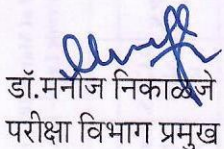 डॉ.मनोज निकाळजे
परीक्षा विभाग प्रमुख